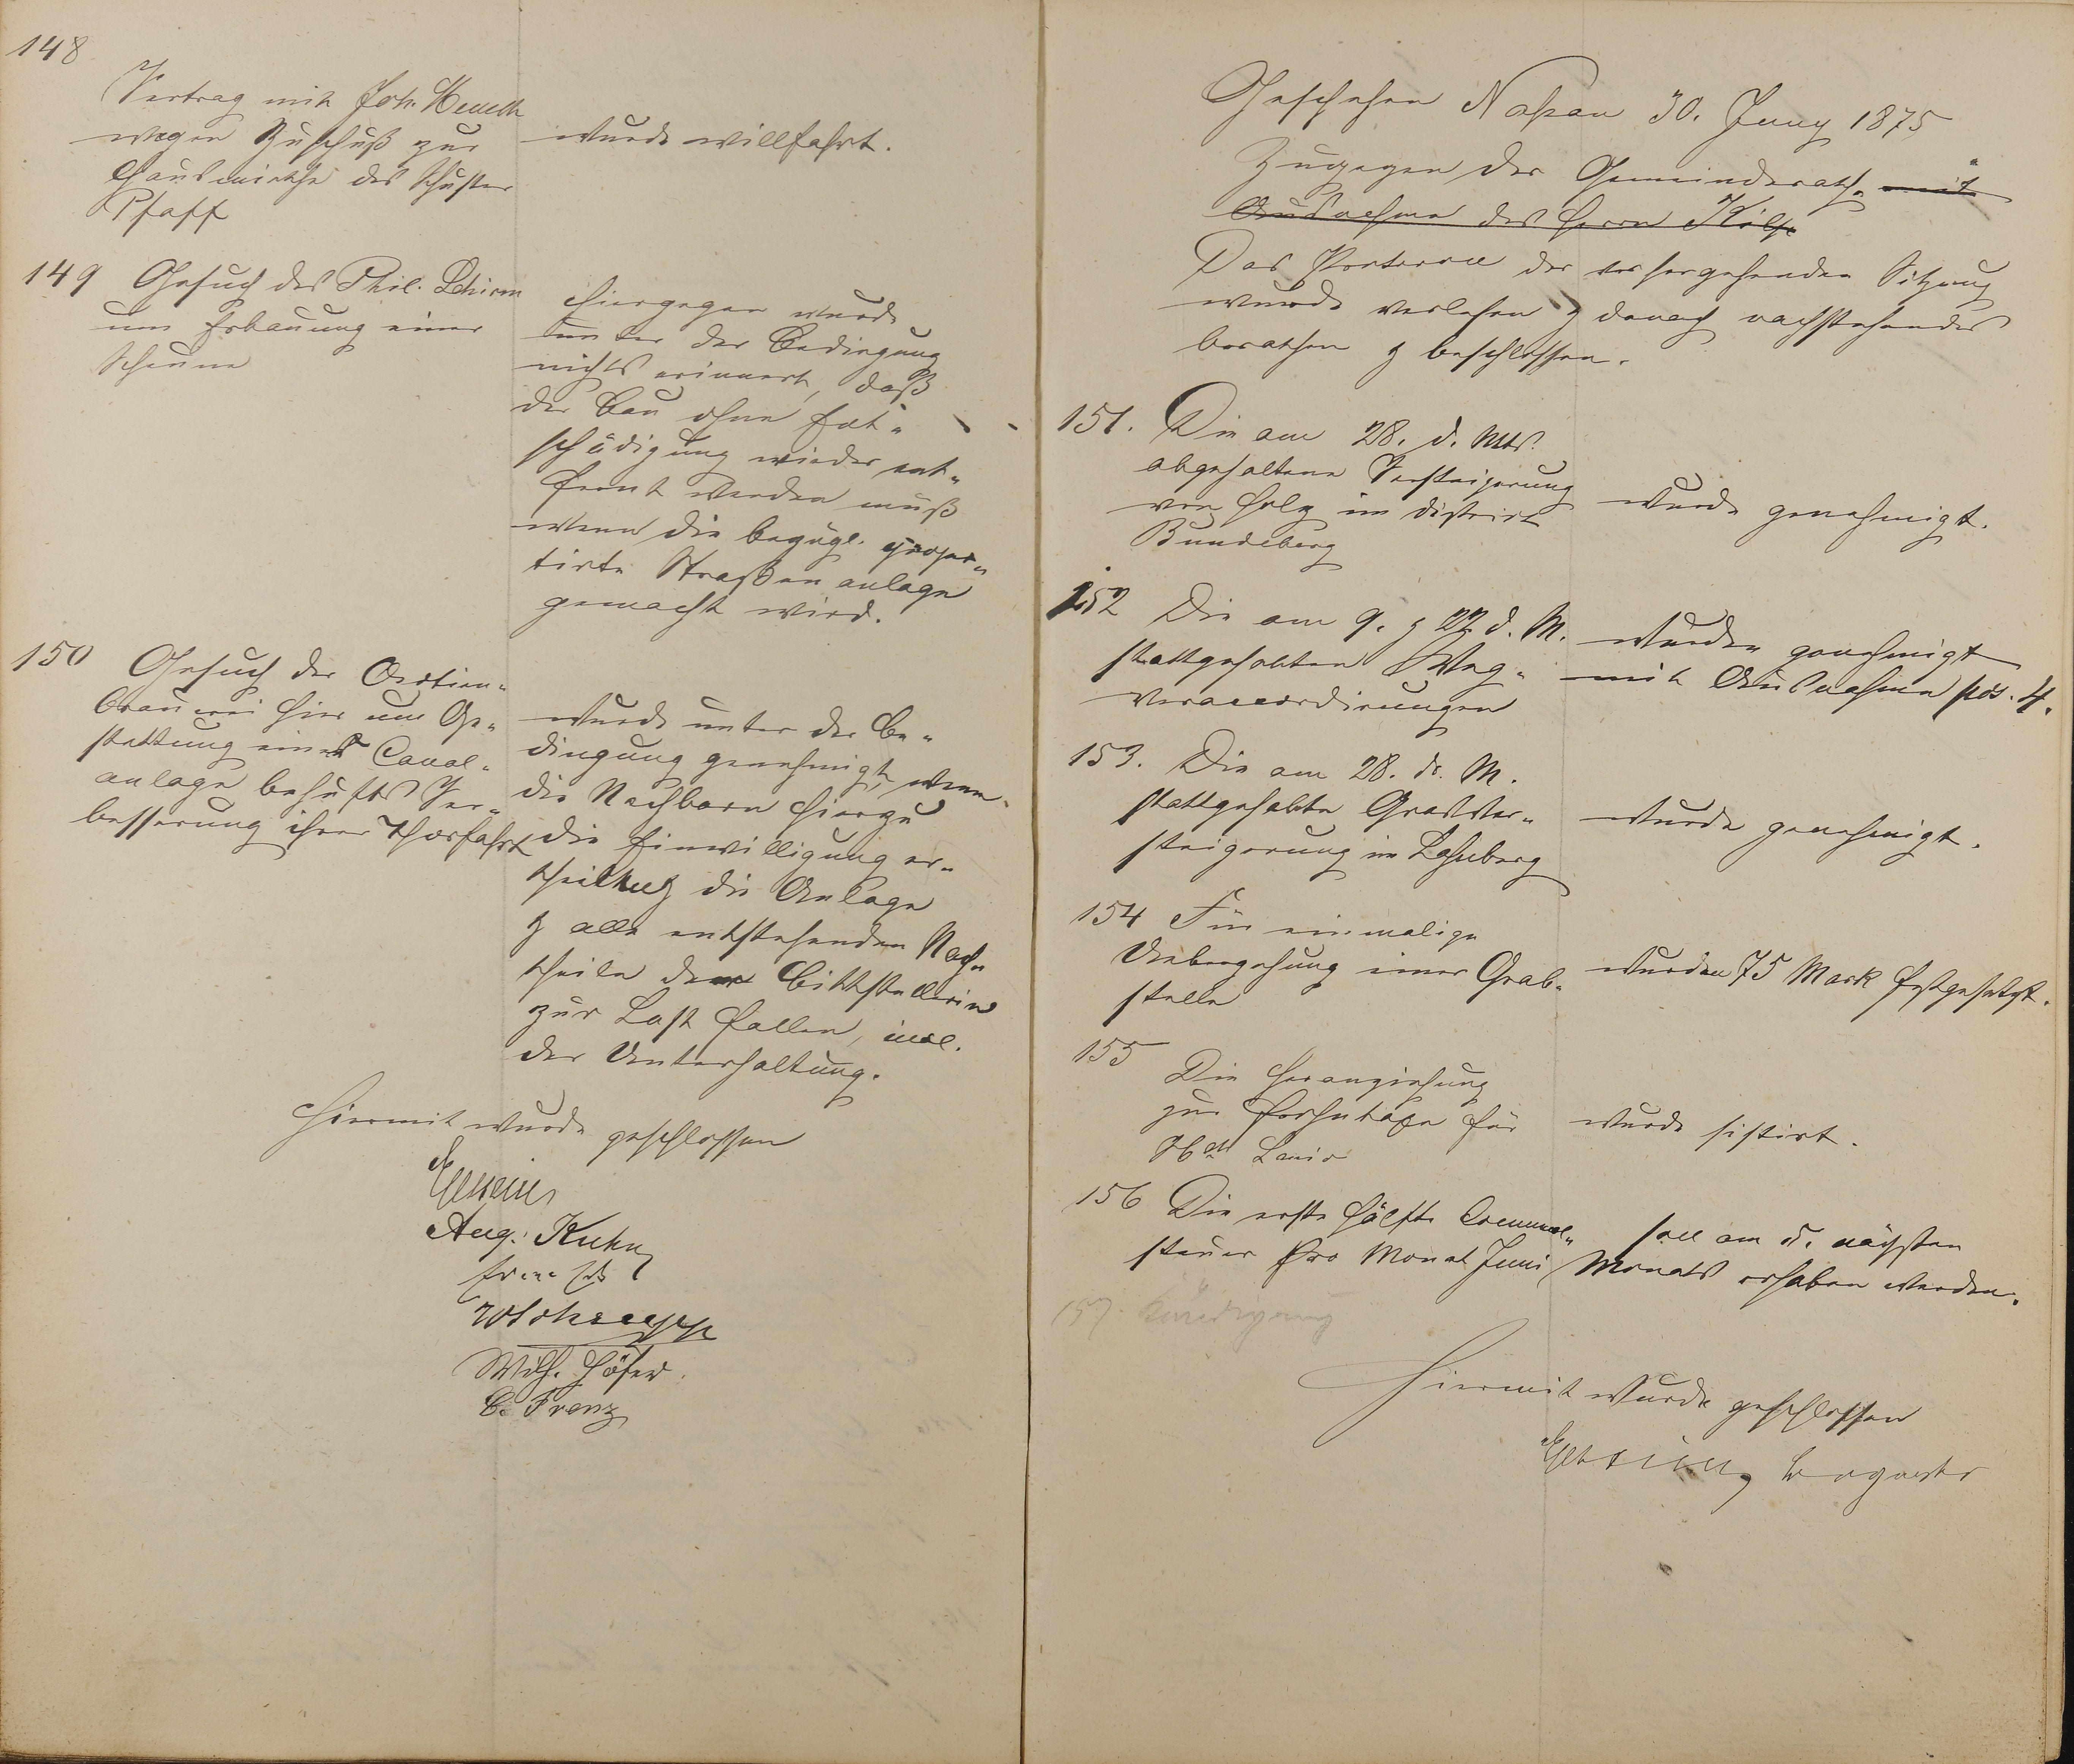 148
Vertrag mit Joh.
wegen Zuschuß zur
Hausmiethe des Schuster
Pfaff
wurde willfahrt.
149 Gesuch des Phil. Schirm
um Erbauung einer
Scheune
Hiergegen wurde
unter der Bedingung
nichts erinnert, daß
der Bau ohne Ent-
schädigung wieder ent-
fernt werden muß
wenn die bezügl. projec-
tirte Straßenanlage
gemacht wird.
150 Gesuch der Actien-
brauerei hier um Ge-
stattung einer Canal-
anlage behufs Ver-
besserung ihrer Thorfahrt
wurde unter der Be-
dingung genehmigt, wenn
die Nachbarn hierzu
die Einwilligung er-
theilen & die Anlage
& alle entstehenden Nach-
theile der Bittstellerin
zur Last fallen, incl.
der Unterhaltung.
Hiermit wurde geschlossen
Aug. Kuhn
Wilh. Höfer.
C. Franz
Geschehen Nassau 30. Juny 1875
Zugegen der Gemeinderath mit
Ausnahme des Herrn
Das Protocoll der vorhergehenden Sitzung
wurde verlesen & danach nachstehendes
berathen & beschlossen.
151. Die am 28. d. Mts.
abgehaltene Versteigerung
von Holz im District
Bundeberg
wurde genehmigt.
152 Die am 9. & 22 d. M.
stattgehabten Weg-
veraccordirungen
wurden genehmigt
mit Ausnahme pos. 4.
153. Die am 28. d. M.
stattgehabte Grasver-
steigerung im Lahnberg
wurde genehmigt.
154 Für einmalige
Uebergehung einer Grab-
stelle
wurden 75 Mark festgesetzt.
155
Die Heranziehung
zur für
wurde sistirt.
156 Die erste Hälfte Communal-
steuer pro Monat Juni
soll am 5. nächsten
Monats erhoben werden.
157. Kündigung
Hiermit wurde geschlossen